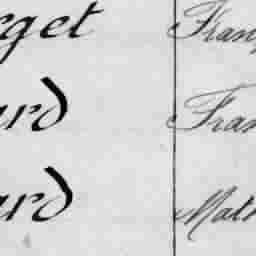 rget Fran
ard Fran
ard Math